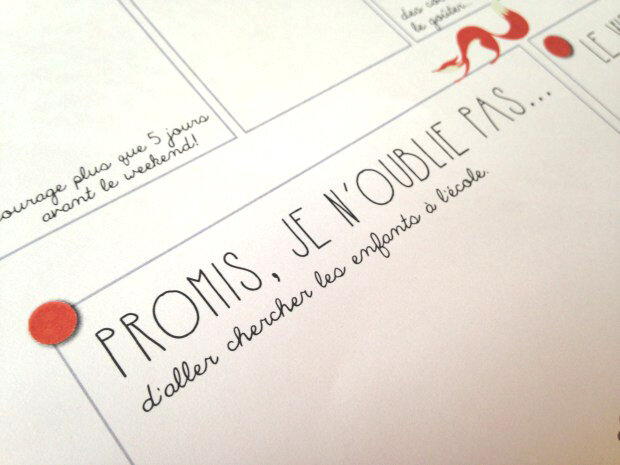 des
le goûter...
LE
courage plus que 5 jours
avant le weekend!
PROMIS, JE N'OUBLIE PAS...
d'aller chercher les enfants à l'école.